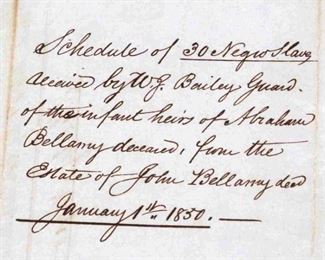 Schedule of 30 Negro Slaves
received by W. J. Bailey Guard.
of the infant heirs of Abraham
Bellamy deceased, from the
Estate of John Bellamy decd
January 1st 1850. —